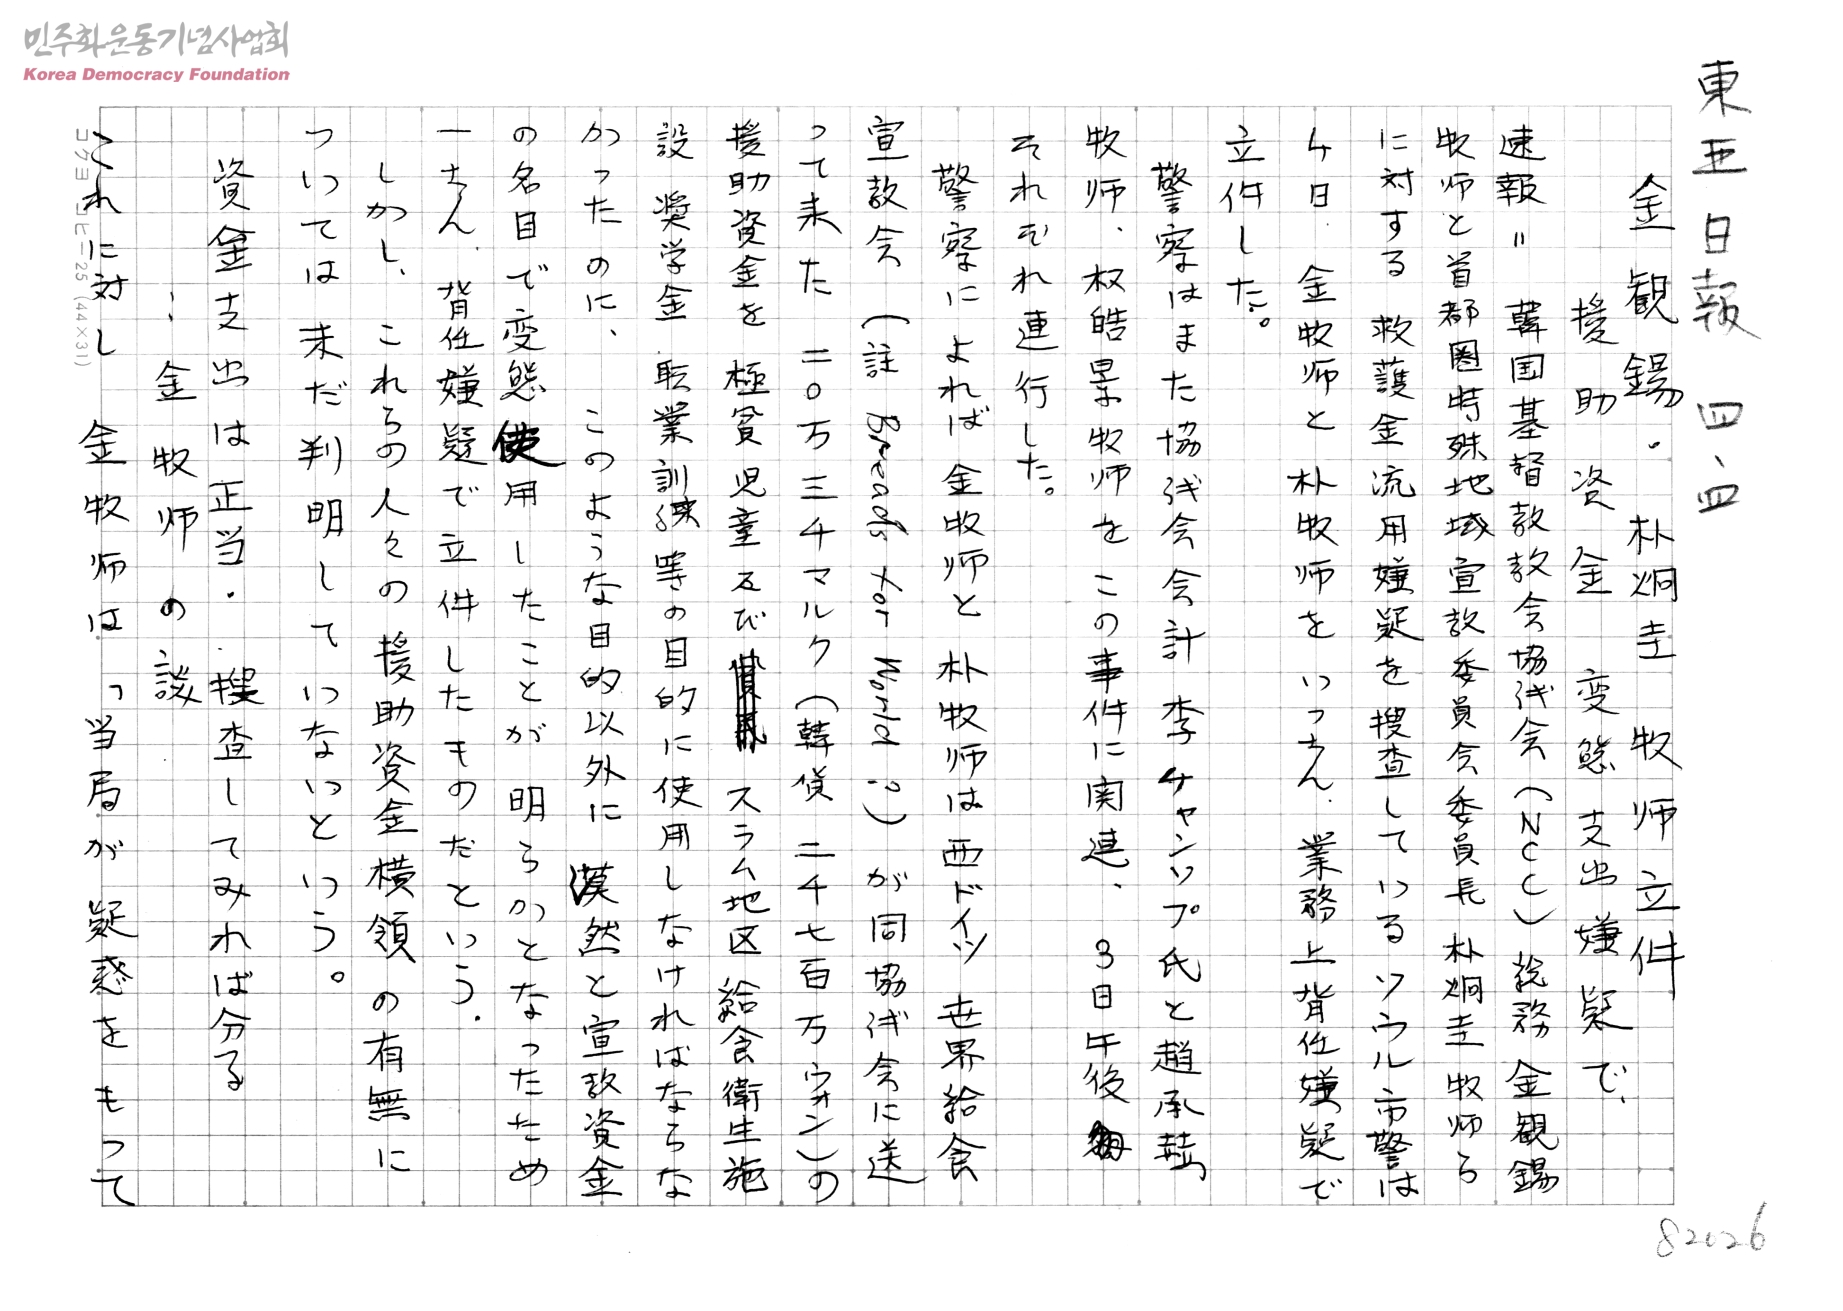 민주화운동기념사업회
Korea Democracy Foundation
東亜日報 四、四
金観錫・朴炯圭牧师立件
援助資金変態支出嫌疑で、
速報＝韓国基督教教会協議会（NCC）総務金観錫
牧师と首都圏特殊地域宣教委員会委員長朴炯圭牧师ら
に対する救護金流用嫌疑を捜査しているソウル市警は
4日、金牧师と朴牧师をいったん、業務上背任嫌疑で
立件した。
警察はまた協議会会計李チャンソプ氏と趙承赫
牧师、权皓景牧师をこの事件に関連、3日午後
それぞれ連行した。
警察によれば金牧师と朴牧师は西ドイツ世界給食
宣教会（註 Breads for World ??）が同協議会に送
って来た二〇万三千マルク（韓貨二千七百万ウォン）の
援助資金を極貧児童及びスラム地区給食衛生施
設、奨学金、职業訓練等の目的に使用しなければならな
かったのに、このような目的以外に漠然と宣教資金
の名目で変態使用したことが明らかとなったため
一たん、背任嫌疑で立件したものだという.
しかし、これらの人々の援助資金横領の有無に
ついては未だ判明していないという。
資金支出は正当・捜査してみれば分る
…金牧师の談
これに対し金牧师は「当局が疑惑をもって
コクヨ コヒー25 (44×31)
82026